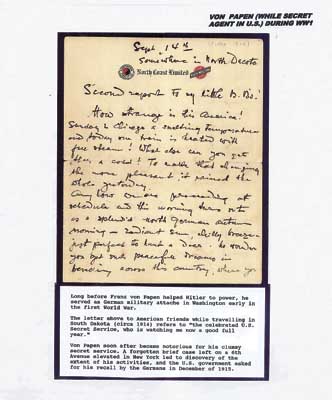 VON PAPEN (WHILE SECRET
AGENT IN U.S.) DURING WW1
Sept 14th
Somewhere in North Dacota
North Coast Limited
Second report to my little B. Bs!
How strange is this America!
Sunday in Chicago a temperature
and today our train is heated with
free steam! What else can you get
a cold! To make that changing
the more pleasant it rained the
whole yesterday.
Any how we are proceeding at
schedule and this morning turns out
as a splendid north German autumn
morning – radiant sun, chilly breeze –
just perfect to hunt a deer. No wonder
you get such peaceful dreams in
across this country, where you
Long before Franz von Papen helped Hitler to power, he
served as German military attache in Washington early in
the first World War.
The letter above to American friends while travelling in
South Dakota (circa 1914) refers to "the celebrated U.S.
Secret Service, who is watching me now a good full
year."
Von Papen soon after became notorious for his clumsy
secret service. A forgotten brief case left on a 6th
Avenue elevated in New York led to discovery of the
extent of his activities, and the U.S. government asked
for his recall by the Germans in December of 1915.